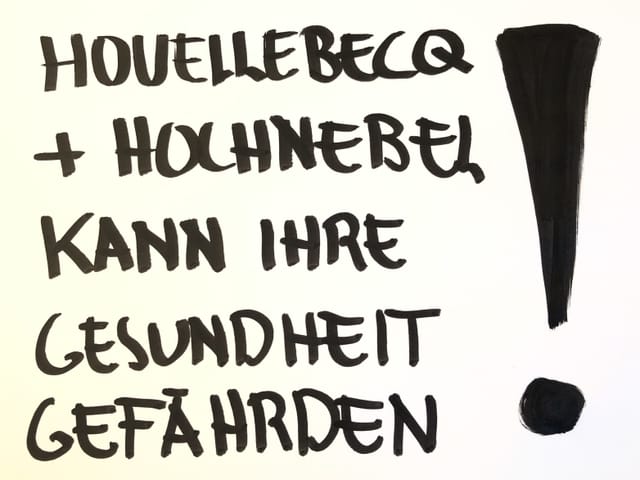 HOUELLEBECQ
+ HOCHNEBEL
KANN IHRE
GESUNDHEIT
GEFÄHRDEN!